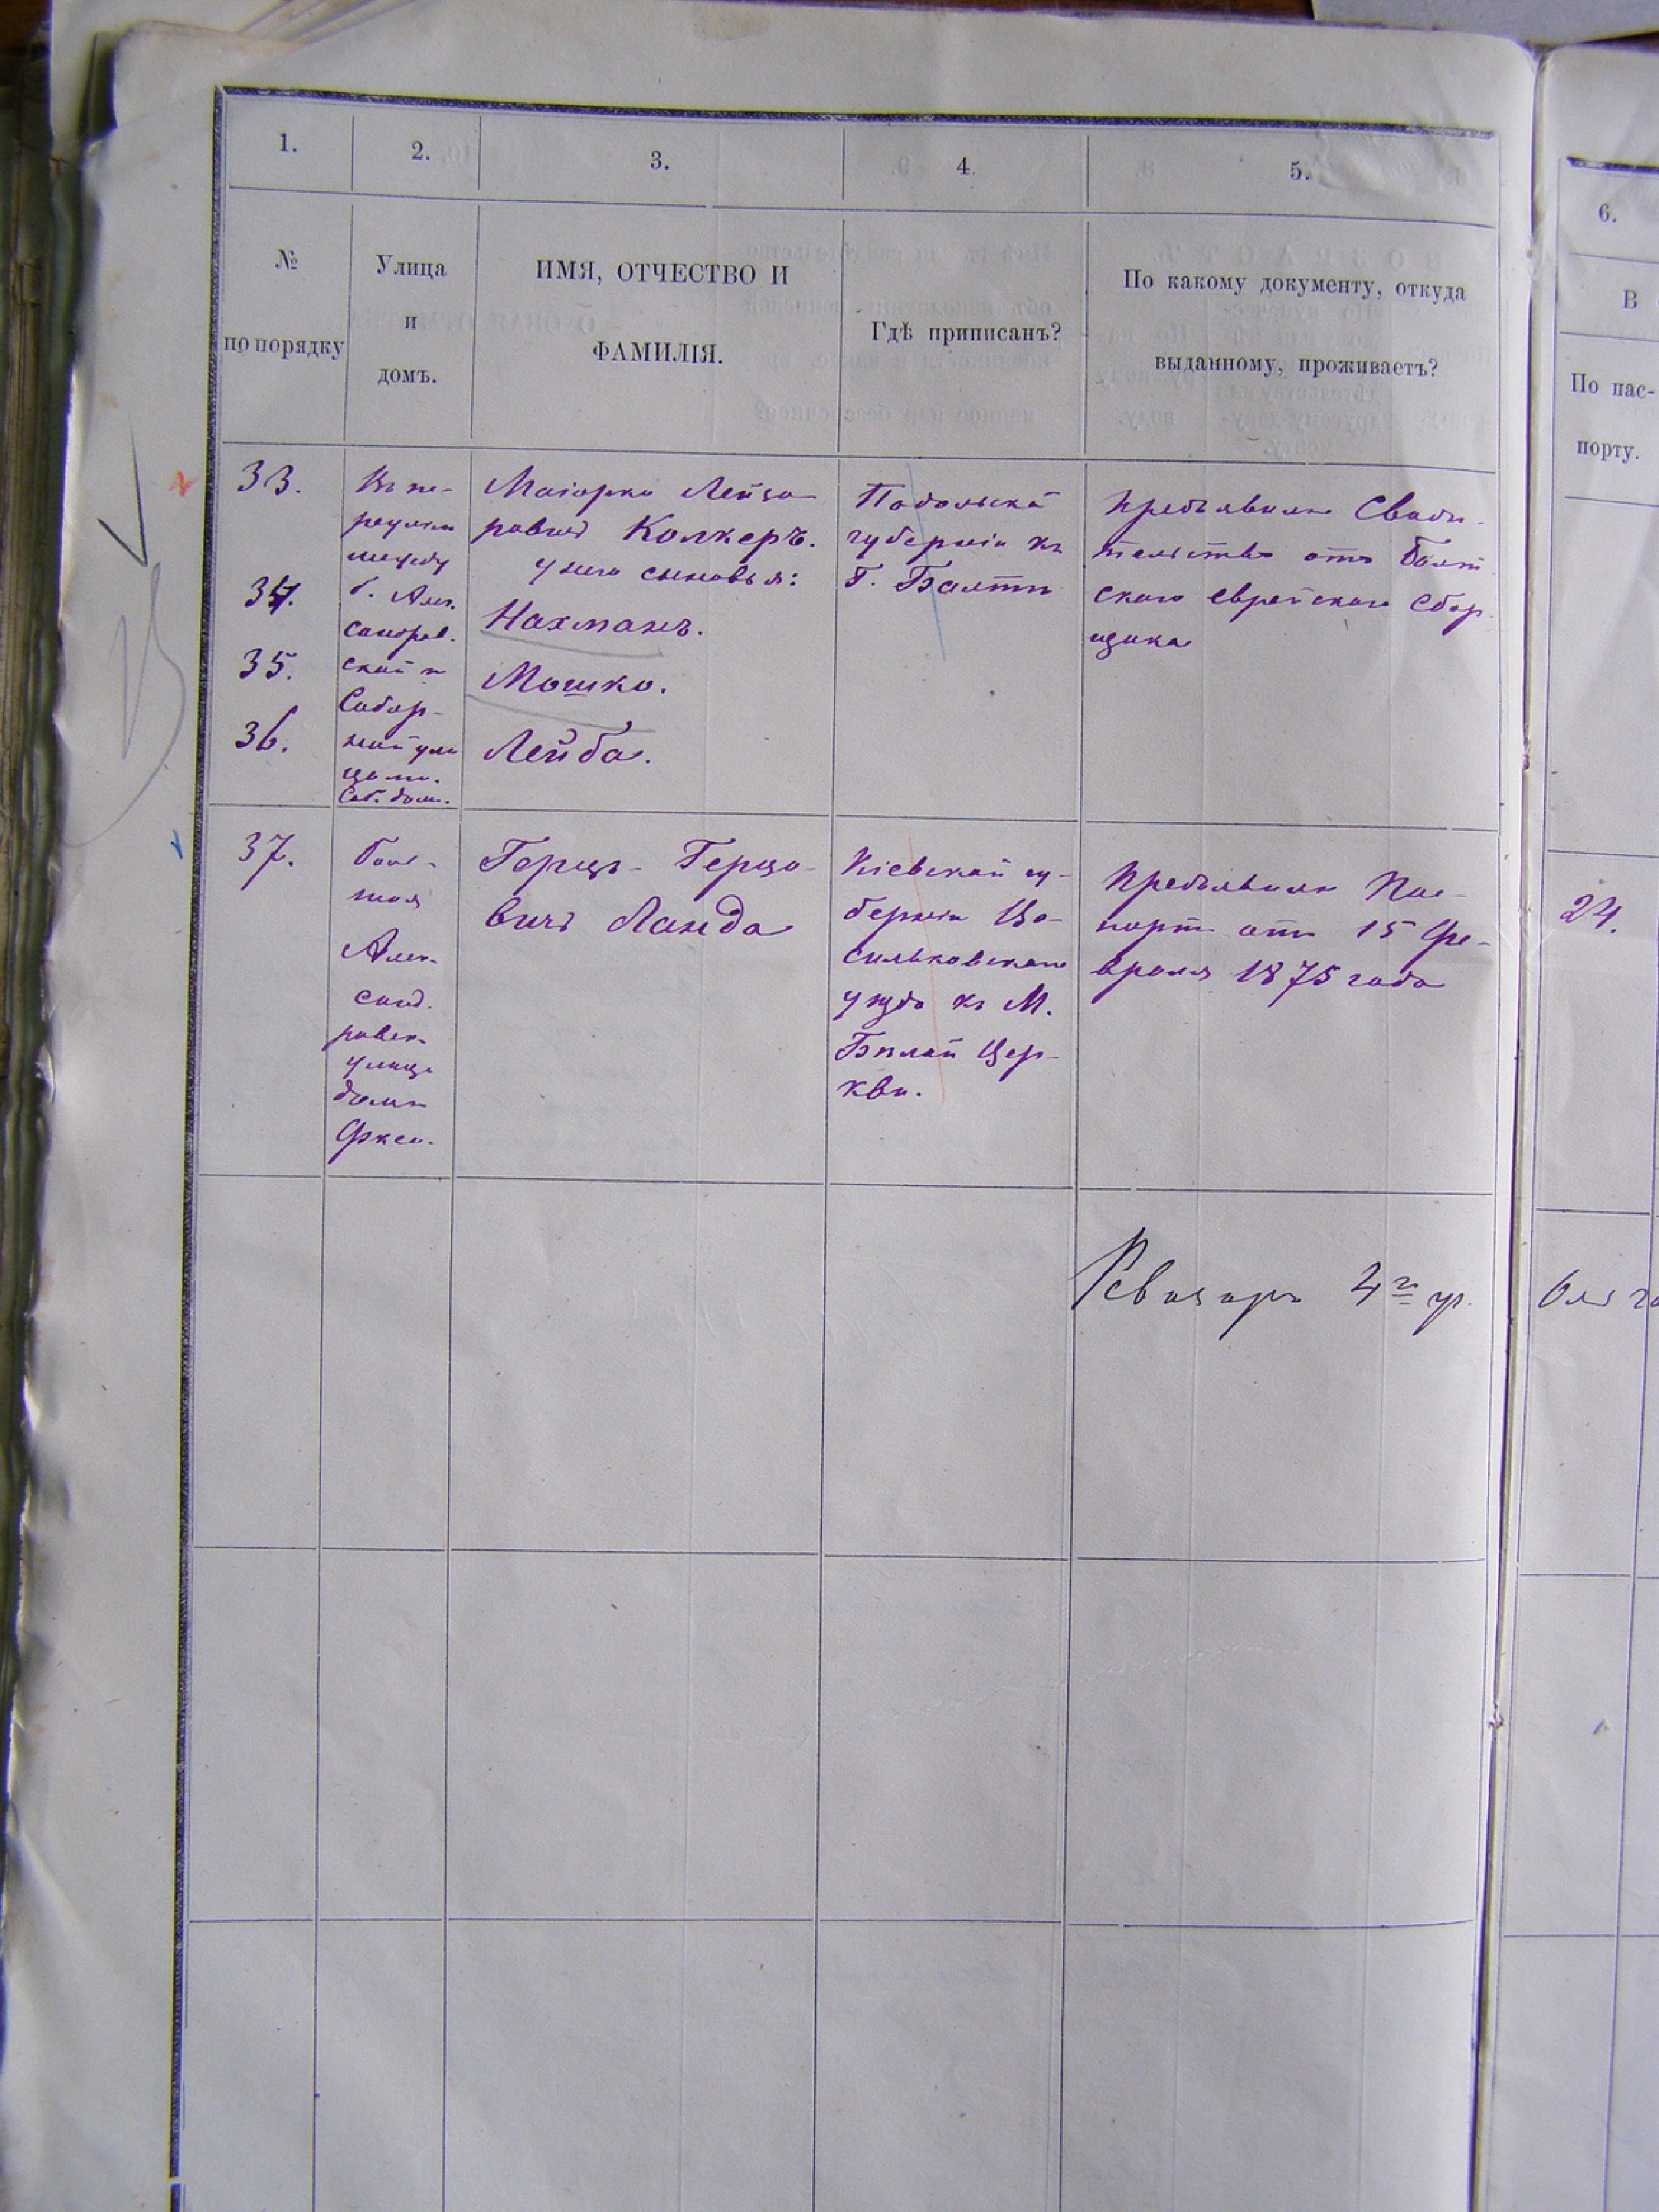 1.
2.
3.
4.
5.
6.
№
по порядку
Улица
и
домъ.
ИМЯ, ОТЧЕСТВО И
ФАМИЛІЯ.
Гдѣ приписанъ?
По какому документу, откуда
выданному, проживаетъ?
В
По пас-
порту.
33.
34.
35.
36.
Въ пе-
реулкѣ
между
б. Алек
сандров.
ской и
Собор-
ной ули
цами.
Соб. домъ.
Маіорко Лейзо
ровичъ Колкеръ.
у него сыновья:
Нахманъ.
Мошко.
Лейба.
Подольской
губерніи къ
Г. Балтѣ
Предъявилъ Свидѣ-
тельство отъ Балт
скаго еврейскаго Сбор
щика
37.
Боль-
шая
Алек-
санд.
ровск.
улица
домъ
Герцъ- Герцо-
вичъ Ланда
Кіевской гу-
берніи Ва-
сильковскаго
уѣзда къ М.
Бѣлой Цер-
кви.
Предъявилъ Пас-
портъ отъ 15 Фе-
враля 1875 года
24.
Ревизоръ 4го